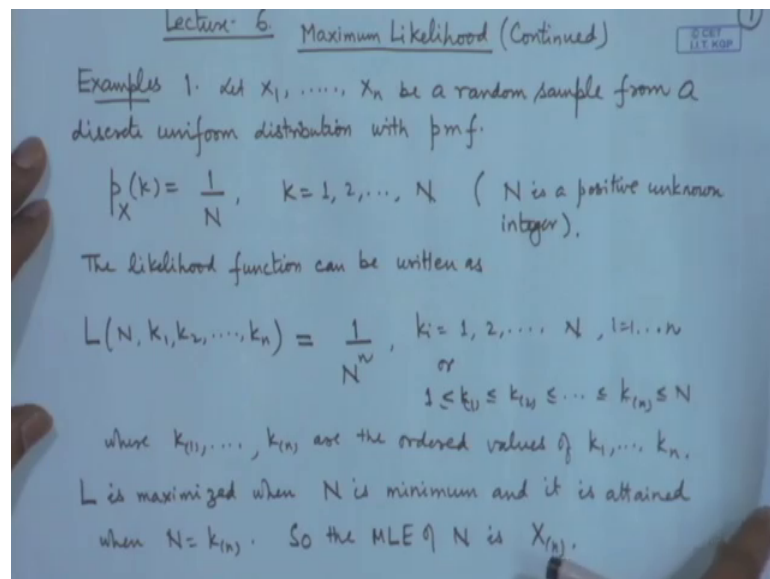 Lecture- 6. Maximum Likelihood (Continued)
1
© CET
I.I.T. KGP
Examples 1. Let X₁, ....., Xₙ be a random sample from a
discrete uniform distribution with pmf.
p_X(k) = 1/N, k = 1, 2, ..., N ( N is a positive unknown
integer).
The likelihood function can be written as
L(N, k₁, k₂, ...., kₙ) = 1/Nⁿ, kᵢ = 1, 2, .... N, i=1...n
or
1 ≤ k₍₁₎ ≤ k₍₂₎ ≤ ... ≤ k₍ₙ₎ ≤ N
where k₍₁₎, ...., k₍ₙ₎ are the ordered values of k₁, .... kₙ.
L is maximized when N is minimum and it is attained
when N = k₍ₙ₎. So the MLE of N is X₍ₙ₎.